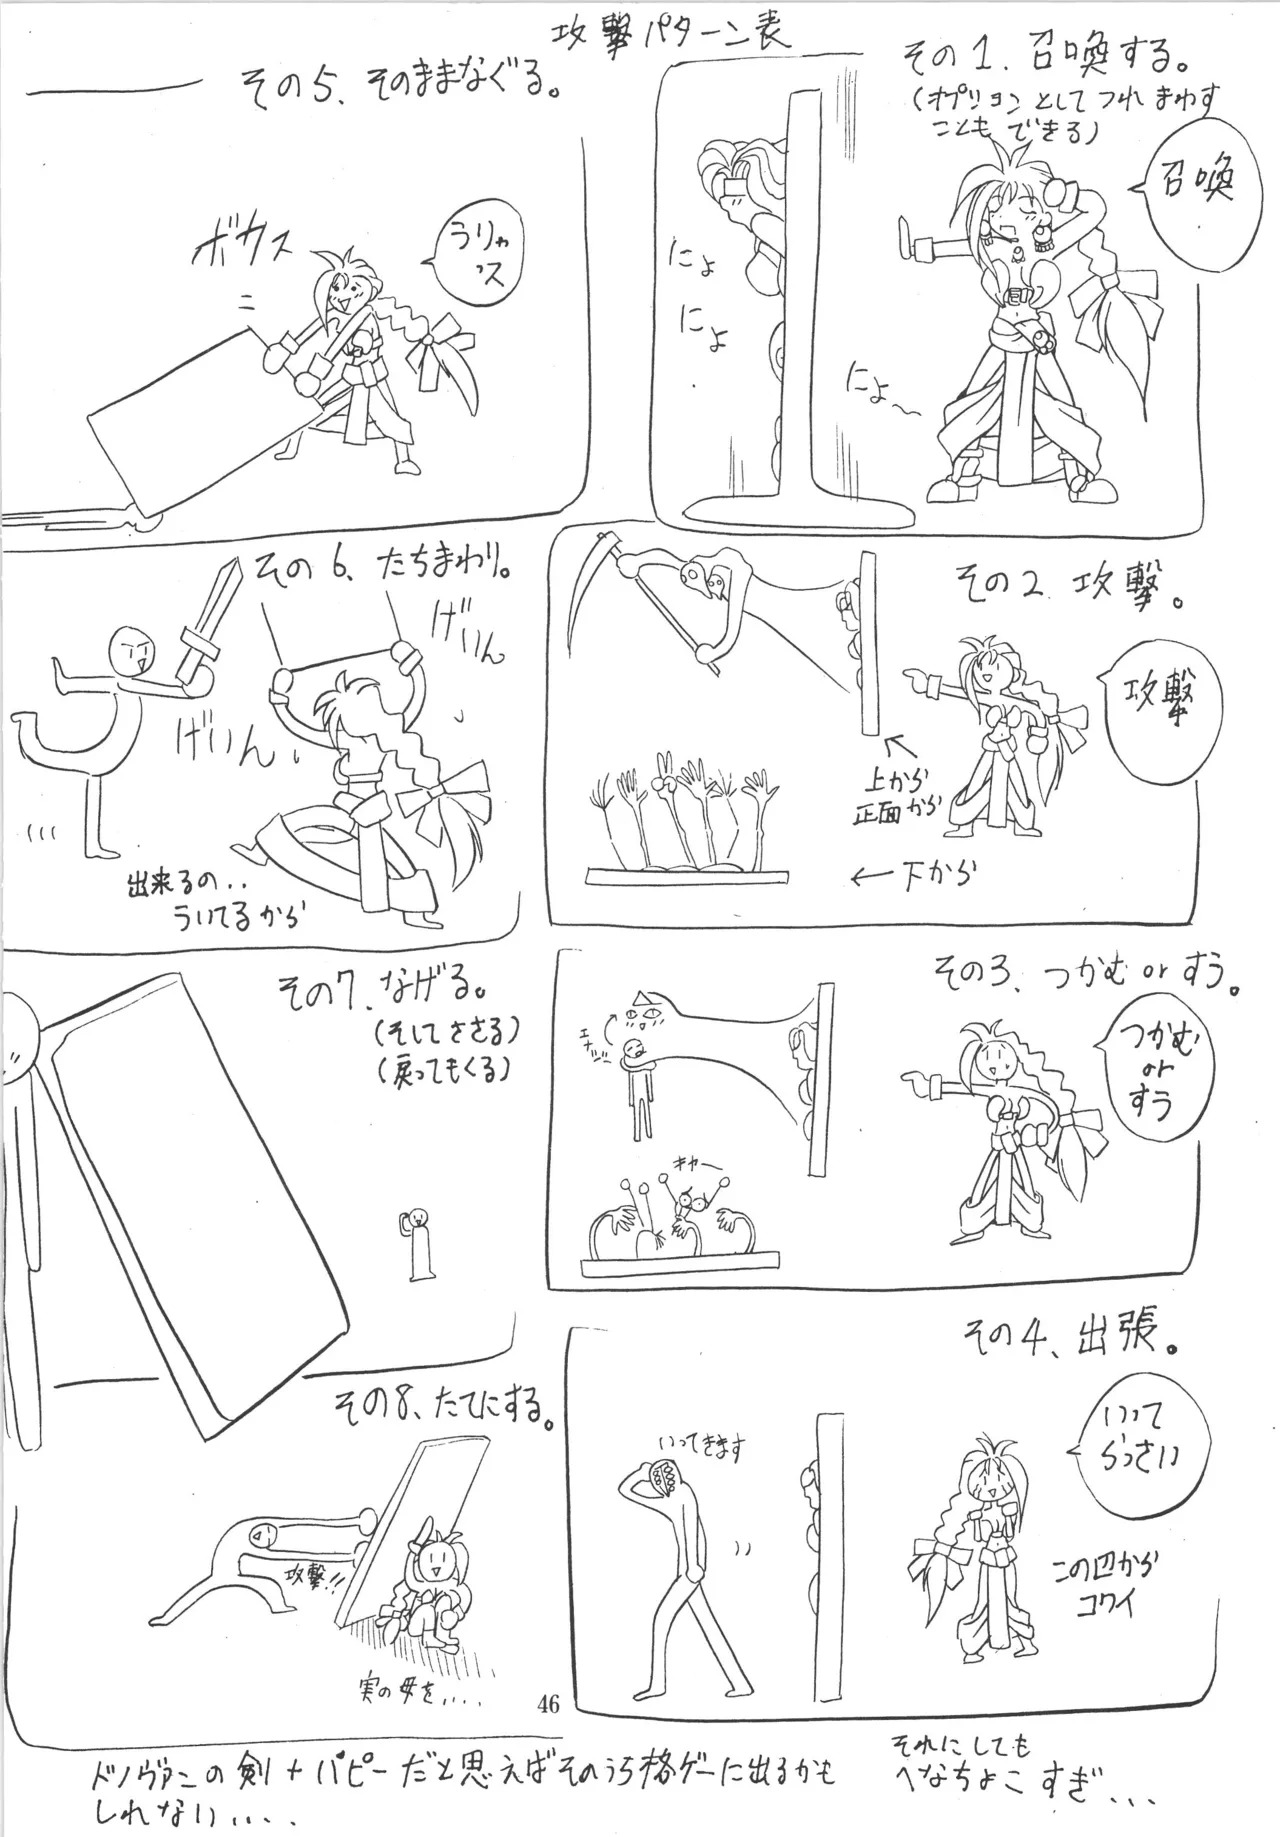 攻撃パターン表
その1、召喚する。
(オプションとしてつれまわす
こともできる)
召喚
にょ
にょ
にょ〜
その2 攻撃。
攻撃
上から
正面から
←下から
その3、つかむorすう。
つかむ
or
すう
キャー
その4、出張。
いって
らっさい
いってきます
この辺から
コワイ
その5、そのままなぐる。
ボカス
うりゃ
'ス
その6、たちまわり。
げいん
げいん
出来るの..
ういてるから
その7、なげる。
(そしてささる)
(戻ってもくる)
その8、たてにする。
攻撃!!
実の母を....
46
ドノヴァンの剣+パピーだと思えばそのうち格ゲーに出るかも
しれない....
それにしても
へなちょこすぎ...